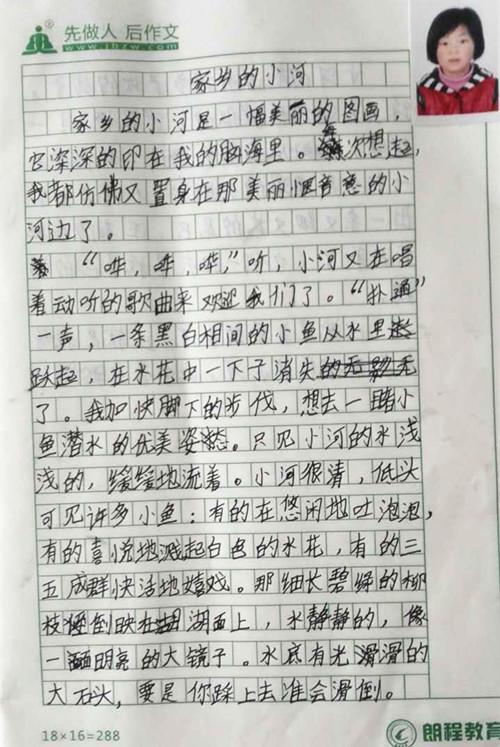 先做人 后作文
www.jbzw.com
家乡的小河
家乡的小河是一幅美丽的图画，
它深深的印在我的脑海里。每次想起，
我都仿佛又置身在那美丽惬意的小
河边了。
“哗，哗，哗，”听，小河又在唱
着动听的歌曲来欢迎我们了。“扑通”
一声，一条黑白相间的小鱼从水里
跃起，在水花中一下子消失的无影无
了。我加快脚下的步伐，想去一睹小
鱼潜水的优美姿态。只见小河的水浅
浅的，缓缓地流着。小河很清，低头
可见许多小鱼：有的在悠闲地吐泡泡，
有的喜悦地溅起白色的水花，有的三
五成群快活地嬉戏。那细长碧绿的柳
枝倒映在湖面上，水静静的，像
一面明亮的大镜子。水底有光滑滑的
大石头，要是你踩上去准会滑倒。
18×16=288
朗程教育